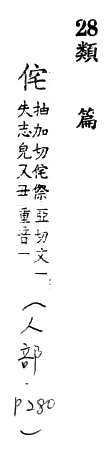 28類篇
侘 抽加切侘傺失志皃又丑亞切文一重音一 (人部·P280)